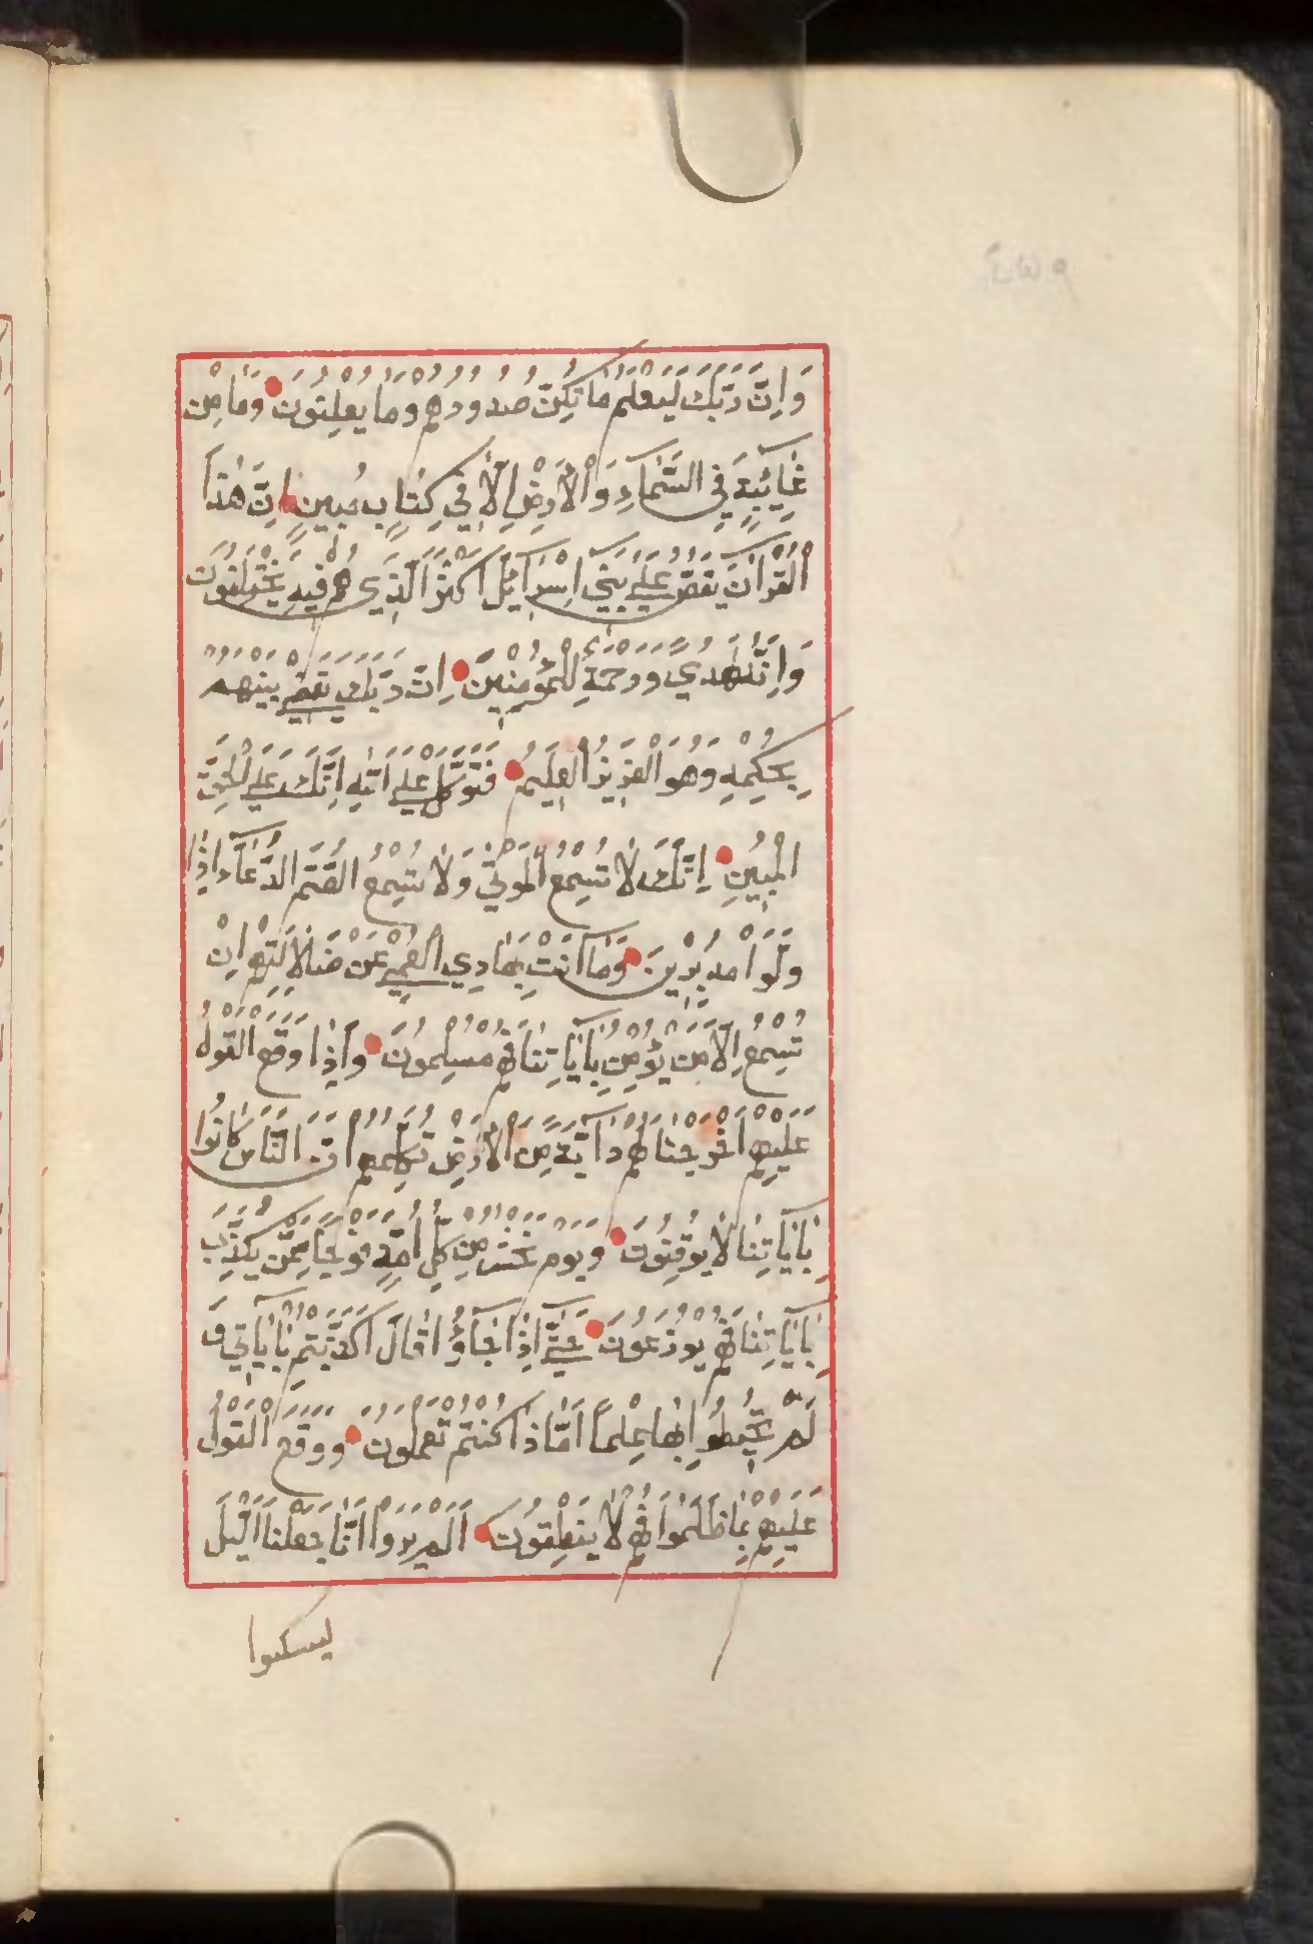 وَاِنَّ رَبَّكَ لَيَعْلَمُ مَا تُكِنُّ صُدُورُهُمْ وَمَا يُعْلِنُونَ وَمَا مِنْ
غَآئِبَةٍ فِي السَّمَآءِ وَالْاَرْضِ اِلَّا فِي كِتَابٍ مُبِينٍ اِنَّ هٰذَا
الْقُرْاٰنَ يَقُصُّ عَلٰى بَنِي اِسْرَآئِيلَ اَكْثَرَ الَّذِي هُمْ فِيهِ يَخْتَلِفُونَ
وَاِنَّهُ لَهُدًي وَرَحْمَةٌ لِلْمُؤْمِنِينَ اِنَّ رَبَّكَ يَقْضِي بَيْنَهُمْ
بِحُكْمِهِ وَهُوَ الْعَزِيزُ الْعَلِيمُ فَتَوَكَّلْ عَلَى اللّٰهِ اِنَّكَ عَلَى الْحَقِّ
الْمُبِينِ اِنَّكَ لَا تُسْمِعُ الْمَوْتٰى وَلَا تُسْمِعُ الصُّمَّ الدُّعَآءَ اِذَا
وَلَّوْا مُدْبِرِينَ وَمَآ اَنْتَ بِهَادِي الْعُمْيِ عَنْ ضَلَالَتِهِمْ اِنْ
تُسْمِعُ اِلَّا مَنْ يُؤْمِنُ بِاٰيَاتِنَا فَهُمْ مُسْلِمُونَ وَاِذَا وَقَعَ الْقَوْلُ
عَلَيْهِمْ اَخْرَجْنَا لَهُمْ دَآبَّةً مِنَ الْاَرْضِ تُكَلِّمُهُمْ اَنَّ النَّاسَ كَانُوا
بِاٰيَاتِنَا لَا يُوقِنُونَ وَيَوْمَ نَحْشُرُ مِنْ كُلِّ اُمَّةٍ فَوْجًا مِمَّنْ يُكَذِّبُ
بِاٰيَاتِنَا فَهُمْ يُوزَعُونَ حَتّٰى اِذَا جَآؤُا قَالَ اَكَذَّبْتُمْ بِاٰيَاتِي وَ
لَمْ تُحِيطُوا بِهَا عِلْمًا اَمَّا ذَا كُنْتُمْ تَعْمَلُونَ وَوَقَعَ الْقَوْلُ
عَلَيْهِمْ بِمَا ظَلَمُوا فَهُمْ لَا يَنْطِقُونَ اَلَمْ يَرَوْا اَنَّا جَعَلْنَا الَّيْلَ
ليسكنوا